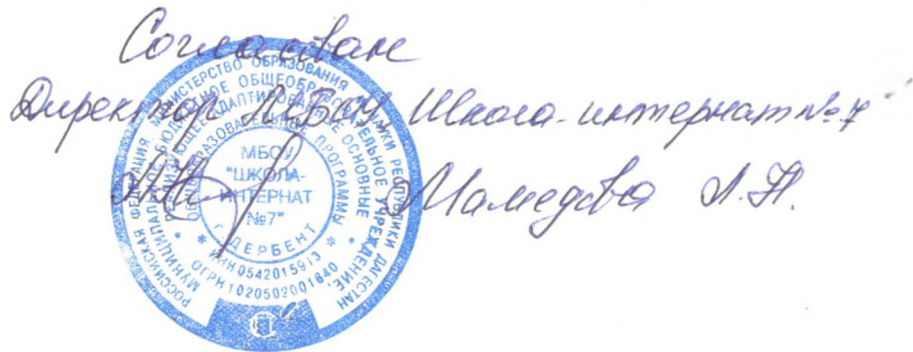 Согласован
Директор МБОУ Школа-интернат №7
Мамедова
РОССИЙСКАЯ ФЕДЕРАЦИЯ МИНИСТЕРСТВО ОБРАЗОВАНИЯ И НАУКИ РЕСПУБЛИКИ ДАГЕСТАН
МУНИЦИПАЛЬНОЕ БЮДЖЕТНОЕ ОБЩЕОБРАЗОВАТЕЛЬНОЕ УЧРЕЖДЕНИЕ,
РЕАЛИЗУЮЩЕЕ АДАПТИРОВАННЫЕ ОСНОВНЫЕ
ОБЩЕОБРАЗОВАТЕЛЬНЫЕ ПРОГРАММЫ
МБОУ
"ШКОЛА-
ИНТЕРНАТ
№7"
г. ДЕРБЕНТ
ИНН 0542015913
ОГРН 1020502001840